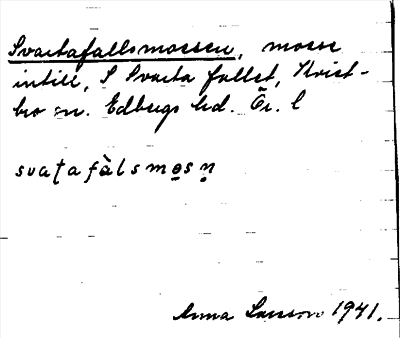 Svartafallsmossen, mosse
intill, S Svarta fallet, Kvist-
bro sn. Edbergs hd. Ör. l
svaṭafàlsmo̲sṇ
Anna Larsson 1941.